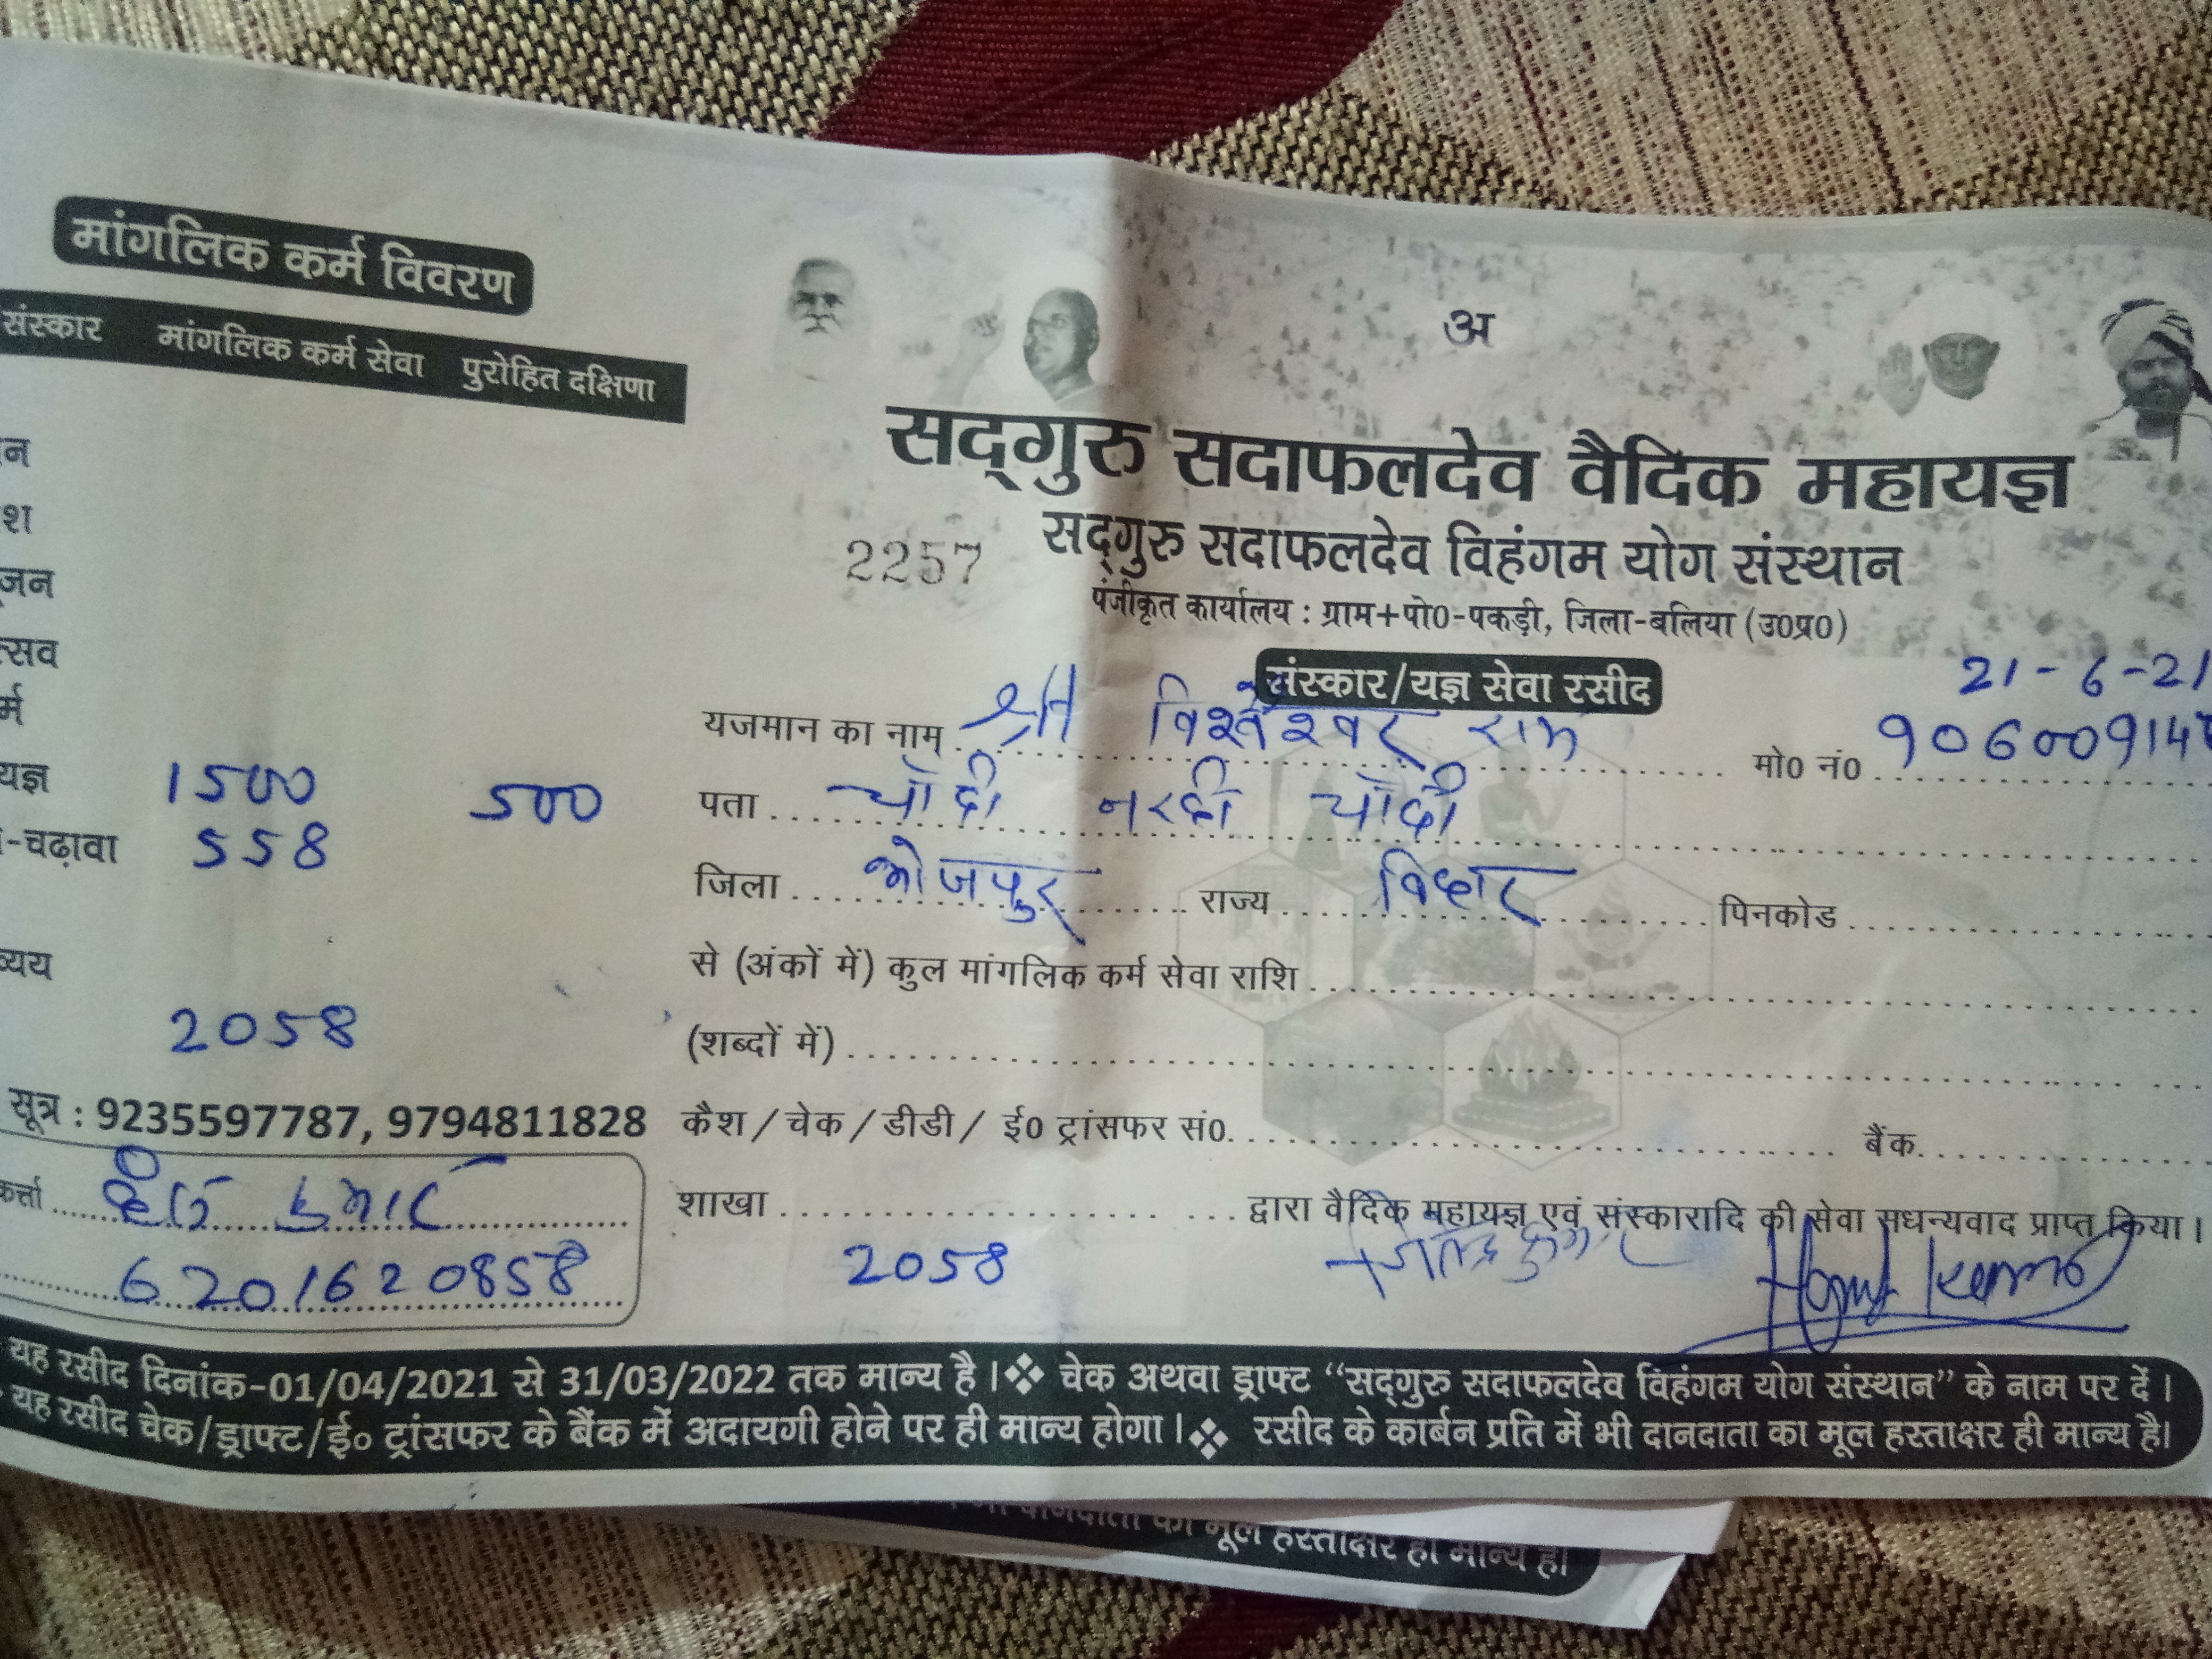 मांगलिक कर्म विवरण
संस्कार मांगलिक कर्म सेवा पुरोहित दक्षिणा
न
श
जन
त्सव
र्म
यज्ञ 1500 500
-चढ़ावा 558
व्यय
2058
सूत्र : 9235597787, 9794811828
कर्त्ता
6201620858
अ
सद्गुरु सदाफलदेव वैदिक महायज्ञ
2257 सद्गुरु सदाफलदेव विहंगम योग संस्थान
पंजीकृत कार्यालय : ग्राम+पो0-पकड़ी, जिला-बलिया (उ0प्र0)
संस्कार/यज्ञ सेवा रसीद 21-6-21
यजमान का नाम श्री विश्वेश्वर राम मो0 नं0 90600914
पता चाँदी नरही चाँदी
जिला भोजपुर राज्य बिहार पिनकोड
से (अंकों में) कुल मांगलिक कर्म सेवा राशि
(शब्दों में)
कैश / चेक / डीडी / ई0 ट्रांसफर सं0. बैंक.
शाखा द्वारा वैदिक महायज्ञ एवं संस्कारादि की सेवा सधन्यवाद प्राप्त किया।
2058
यह रसीद दिनांक-01/04/2021 से 31/03/2022 तक मान्य है।❖ चेक अथवा ड्राफ्ट “सद्गुरु सदाफलदेव विहंगम योग संस्थान” के नाम पर दें।
यह रसीद चेक/ड्राफ्ट/ई० ट्रांसफर के बैंक में अदायगी होने पर ही मान्य होगा।❖ रसीद के कार्बन प्रति में भी दानदाता का मूल हस्ताक्षर ही मान्य है।
का मूल हस्ताक्षर ही मान्य है।